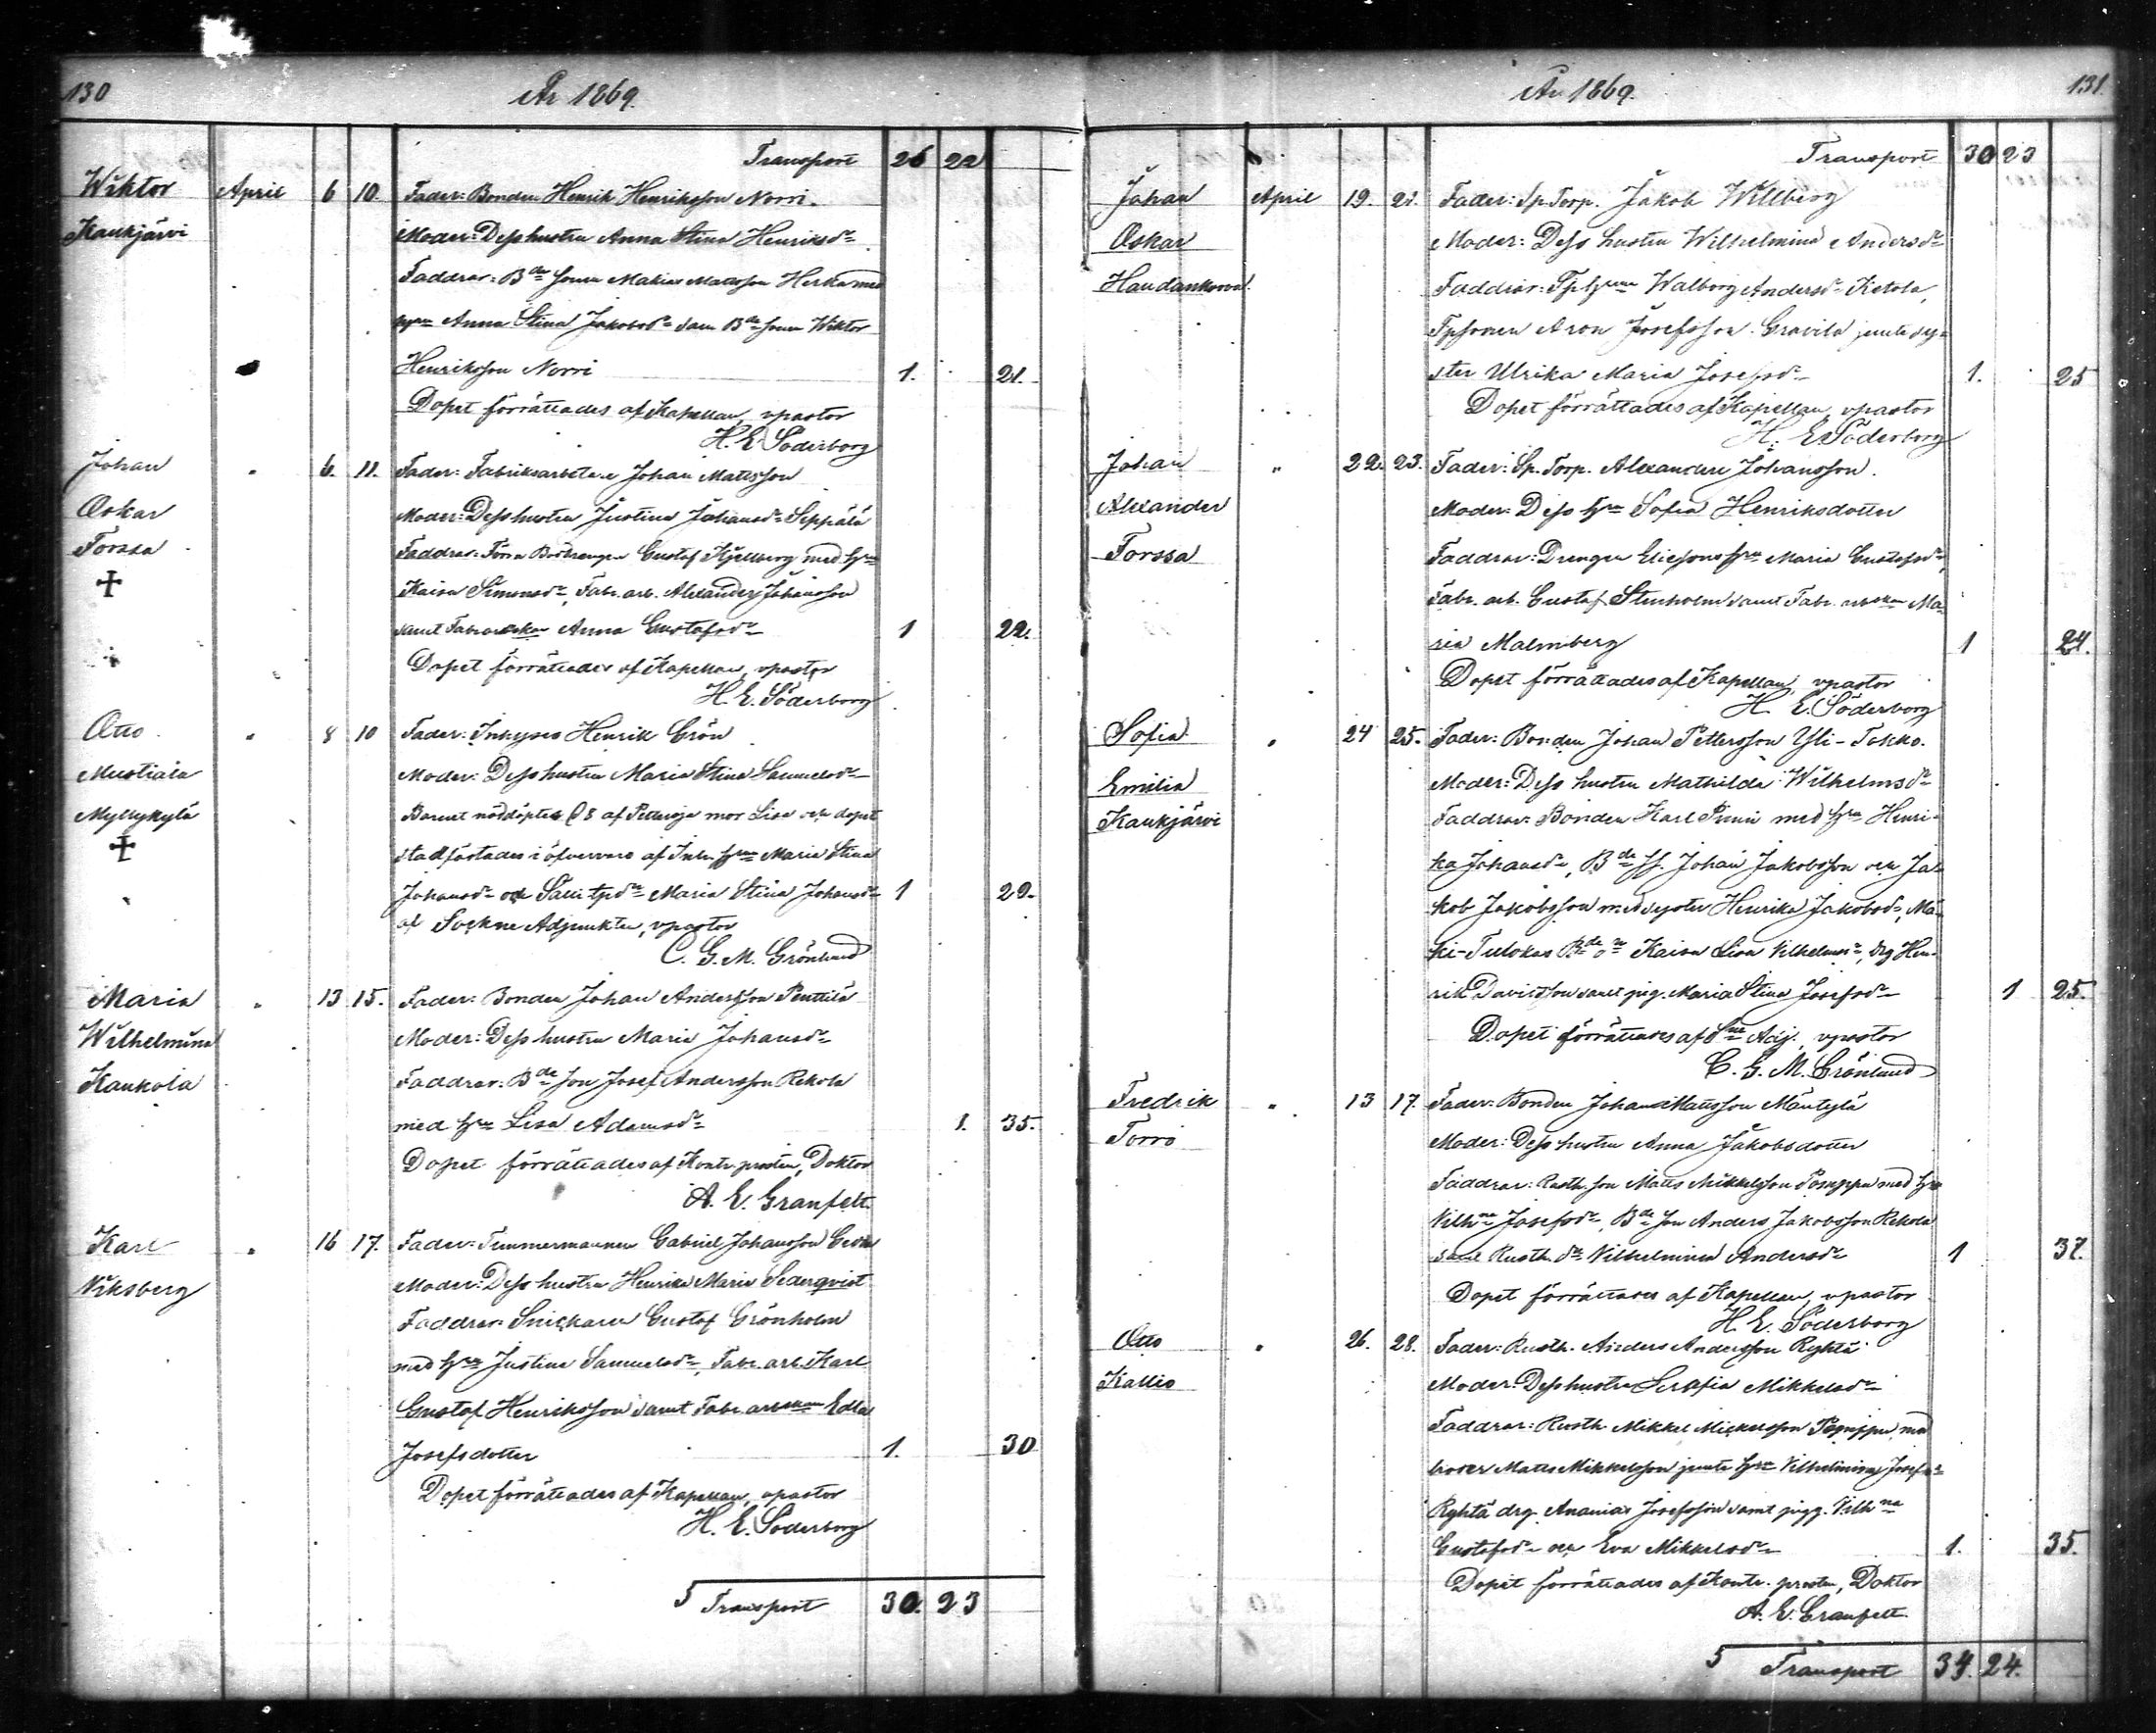 130
År 1869.
Transport 26 22
Wiktor April 6 10. Fader: Bonden Henrik Henriksson Norri.
Kaukjärvi Moder: Dess hustru Anna Stina Henriksdr
Faddrar: Bde sonen Matias Mattsson Herka med
hu Anna Stina Jakobsdr samt Bde sonen Wiktor
Henriksson Norri 1. 21.
Dopet förrättades af Kapellan, vpastor
H. E. Söderborg
Johan " 6. 11. Fader: Fabriksarbetare Johan Mattsson
Oskar Moder: Dess hustru Justina Johansdr Seppälä
Forssa Faddrar: Förra Gustaf Kjellberg med hu
Kaisa Simonsdr, Fabr. arb. Alexander Johansson
samt Fabr arbskan Anna Gustafsdr 1 22.
Dopet förrättades af Kapellan, vpastor
H. E. Söderborg
Otto " 8 10 Fader: Inhyses Henrik Grön
Mustiala Moder: Dess hustru Maria Stina Samuelsdr
Myllykylä Barnet nöddöptes 8 af mor Lisa och dopet
stadfästades i öfvervaro af Inh. hu Maria Stina
Johansdr och Maria Stina Johansdr 1 29.
af Sockne Adjunkten, vpastor
C. G. M. Grönlund
Maria " 13 15. Fader: Bonden Johan Andersson Penttilä
Wilhelmina Moder: Dess hustru Maria Johansdr
Kaukola Faddrar: Bde son Josef Andersson Rekola
med hu Lisa Adamsdr 1. 35.
Dopet förrättades af Kontr. prosten, Doktor
A. E. Granfelt.
Karl " 16 17. Fader: Timmermannen Gabriel Johansson
Wiksberg Moder: Dess hustru Henrika Maria Sederqvist
Faddrar: Snickaren Gustaf Grönholm
med hu Justina Samuelsdr, Fabr. arb. Karl
Gustaf Henriksson samt Fabr. arbskan Edla
Josefsdotter 1. 30
Dopet förrättades af Kapellan, vpastor
H. E. Söderborg
5 Transport 30. 23
År 1869.
131.
Transport 30 23
Johan April 19. 21. Fader: Sp. Torp. Jakob Willberg
Oskar Moder: Dess hustru Wilhelmina Andersdr
Haudankorva Faddrar: Walborg Andersdr Ketola,
Tpsonen Aron Josefsson Gravila jemte sy-
ster Ulrika Maria Josefsdr 1. 25
Dopet förrättades af Kapellan, vpastor
H. E. Söderborg
Johan " 22. 23. Fader: Sp. Torp. Alexander Johansson.
Alexander Moder: Dess hu Sofia Henriksdotter
Forssa Faddrar: Drengen hu Maria Gustafsdr,
Fabr. arb. Gustaf Stenholm samt Fabr. arbskan Ma-
ria Malmberg 1 24.
Dopet förrättades af Kapellan, vpastor
H. E. Söderborg
Sofia " 24 25. Fader: Bonden Johan Pettersson Yli-Tokko.
Emilia Moder: Dess hustru Mathilda Wilhelmsdr
Kaukjärvi Faddrar: Bonden Karl med hu Henri-
ka Johansdr, Bde Johan Jakobsson och Ja-
kob Jakobsson med syster Henrika Jakobsdr, Mä-
ki-Tulokas Kaisa Lisa Vilhelmsdr, drg Hen-
rik Davidsson samt pig. Maria Stina Josefsdr 1 25.
Dopet förrättades af Sne Adj. vpastor
C. G. M. Grönlund
Fredrik " 13 17. Fader: Bonden Johan Mattsson Mäntylä
Torro Moder: Dess hustru Anna Jakobsdotter
Faddrar: Rusth. son Matts Mikkelsson med hu
Vilhna Josefsdr, Bde son Anders Jakobsson Rekola
samt Rusth. dr Vilhelmina Andersdr 1 37.
Dopet förrättades af Kapellan, vpastor
H. E. Söderborg
Otto " 26. 28. Fader: Rusth. Anders Andersson Ryhtä
Kallio Moder: Dess hustru Serafia Mikkelsdr
Faddrar: Rusth. Mikkel Mickelsson med
broder Matts Mikkelsson jemte hu Vilhelmina Josefsdr
Ryhtä drg. Ananias Josefsson samt pigg. Vilhna
Gustafsdr och Eva Mikkelsdr 1. 35.
Dopet förrättades af Kontr. prosten, Doktor
A. E. Granfelt.
5 Transport 34. 24.